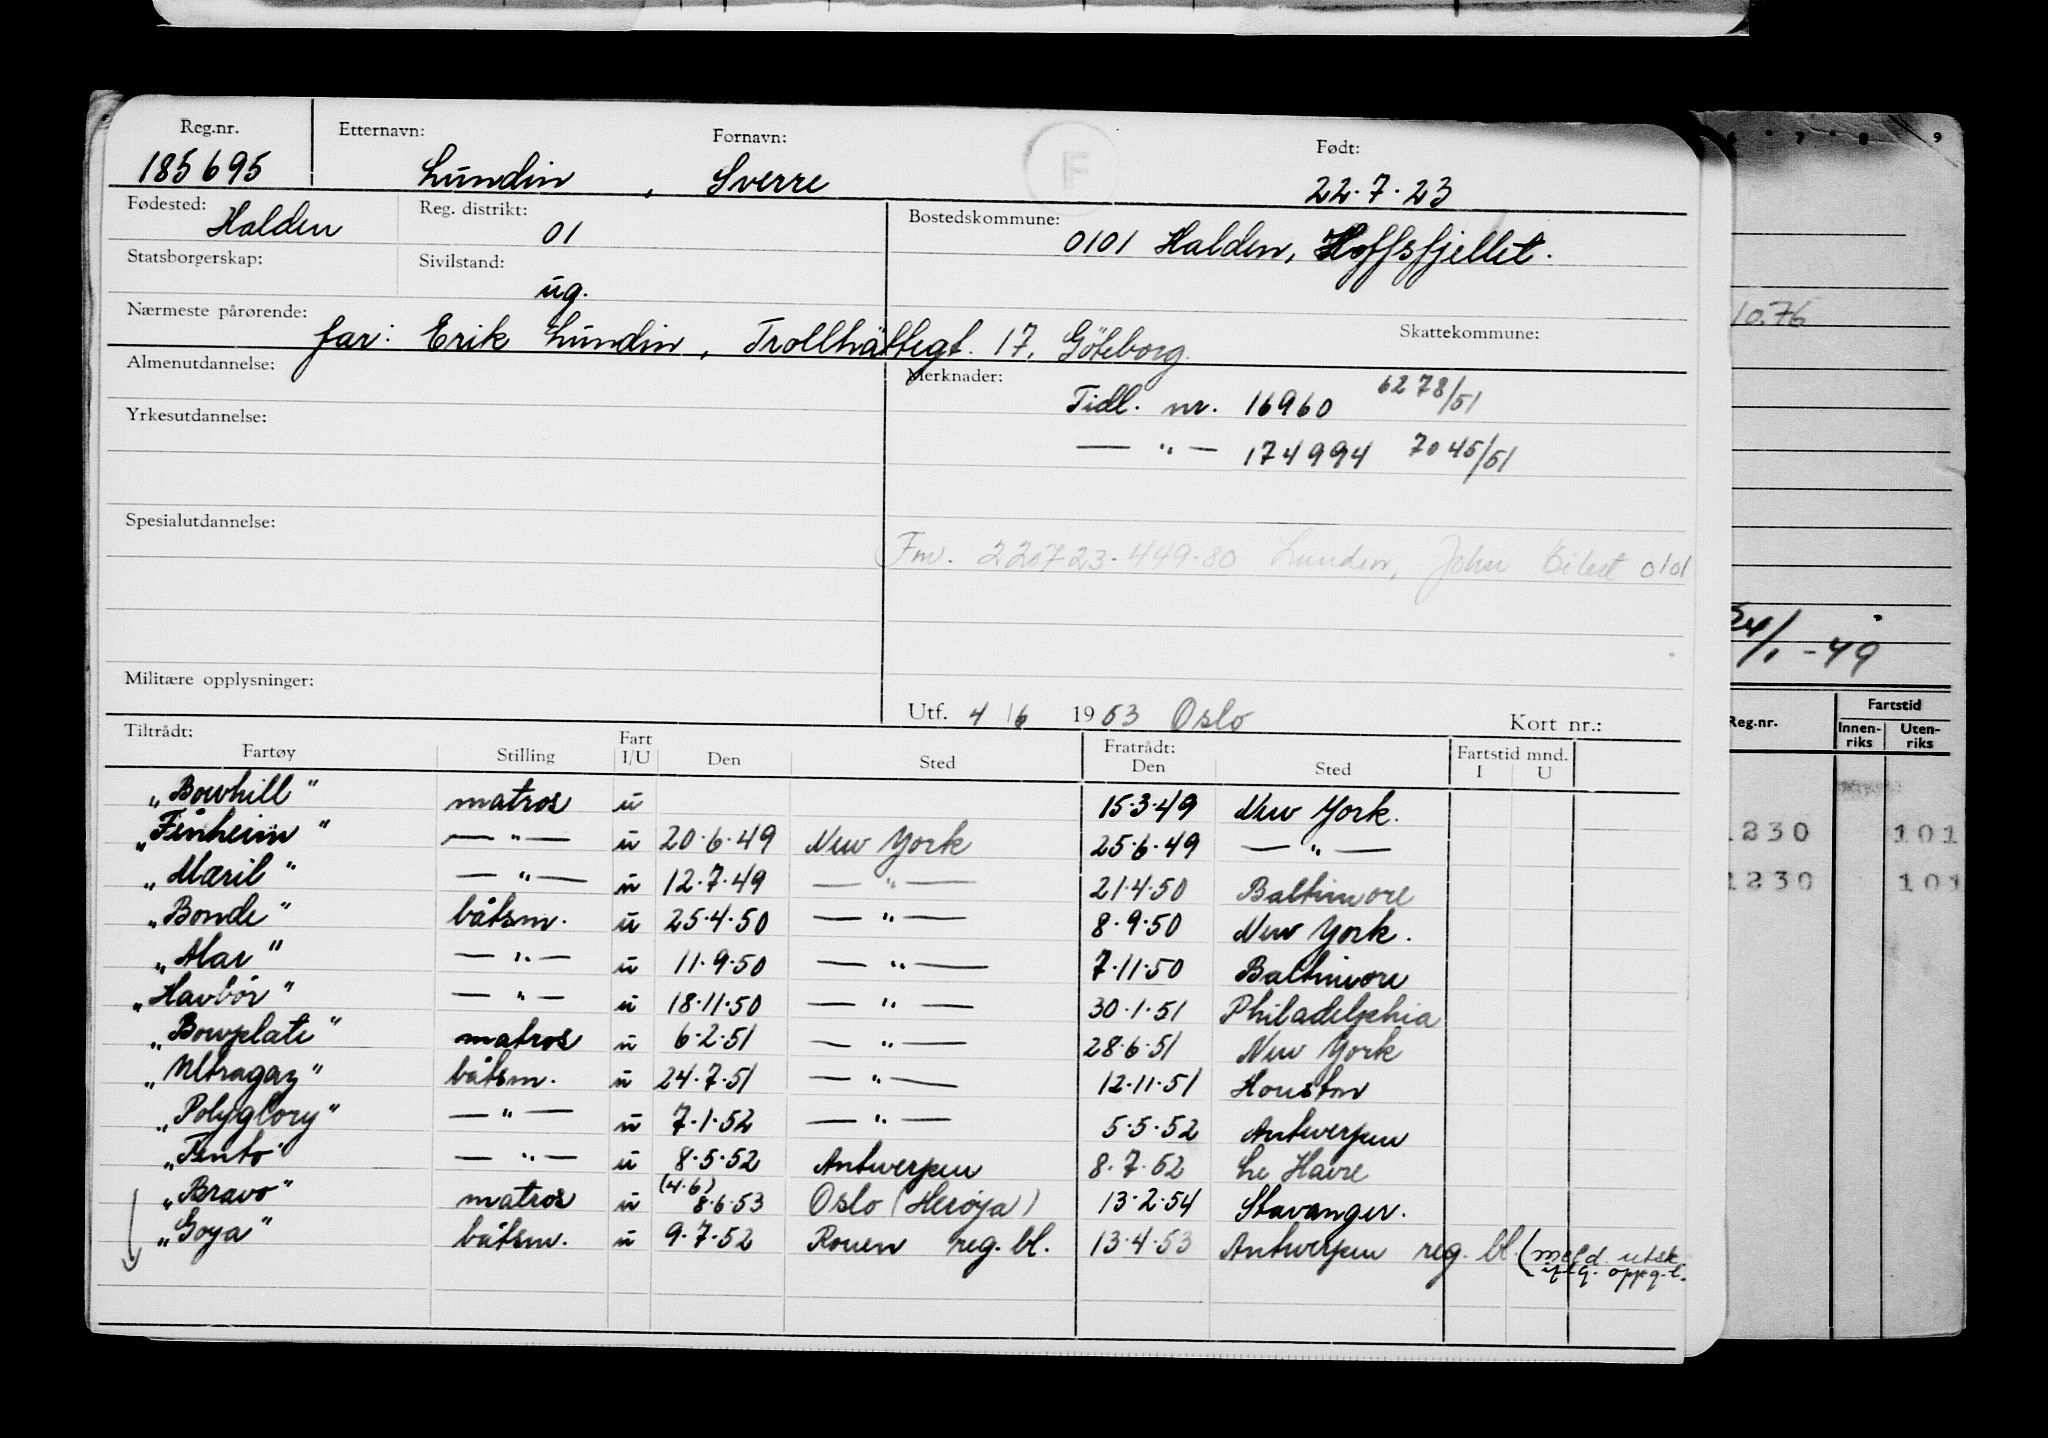 Reg.nr. Etternavn: Fornavn: F Født:
185695 Lundin, Sverre 22.7.23
Fødested: Halden Reg. distrikt: 01 Bostedskommune: 0101 Halden, Hoffsfjellet.
Statsborgerskap: Sivilstand: ug.
Nærmeste pårørende: far: Erik Lundin, Trollhättegt. 17, Göteborg. Skattekommune:
Almenutdannelse: Merknader: Tidl. nr. 16960 6278/51
Yrkesutdannelse: — " — 174994 7045/51
Spesialutdannelse:
Fnr. 220723-449.80 Lunden, John 0101
Militære opplysninger:
Utf. 4/6 1953 Oslo Kort nr.:
Tiltrådt: Fart Fratrådt: Fartstid mnd.
Fartøy Stilling I/U Den Sted Den Sted I U
"Bowhill" matros u 15.3.49 New York.
"Finheim" — " — u 20.6.49 New York 25.6.49 — " —
"Mæril" — " — u 12.7.49 — " — 21.4.50 Baltimore
"Bonde" båtsm. u 25.4.50 — " — 8.9.50 New York.
"Alar" — " — u 11.9.50 — " — 7.11.50 Baltimore
"Havbör" — " — u 18.11.50 — " — 30.1.51 Philadelphia
"Bowplate" matros u 6.2.51 — " — 28.6.51 New York
"Ultragaz" båtsm. u 24.7.51 — " — 12.11.51 Houston
"Polyglory" — " — u 7.1.52 — " — 5.5.52 Antwerpen
"Tento" — " — u 8.5.52 Antwerpen 8.7.52 Le Havre
"Bravo" matros u (4.6) 8.6.53 Oslo (Herøya) 13.2.54 Stavanger.
"Goya" båtsm. u 9.7.52 Rouen reg. bl. 13.4.53 Antwerpen reg. bl. (meld. utsk.
iflg. oppg.
6 7 8 9
10.76
24/1 -49
Reg.nr. Fartstid
Innenriks Utenriks
1230 101
1230 101